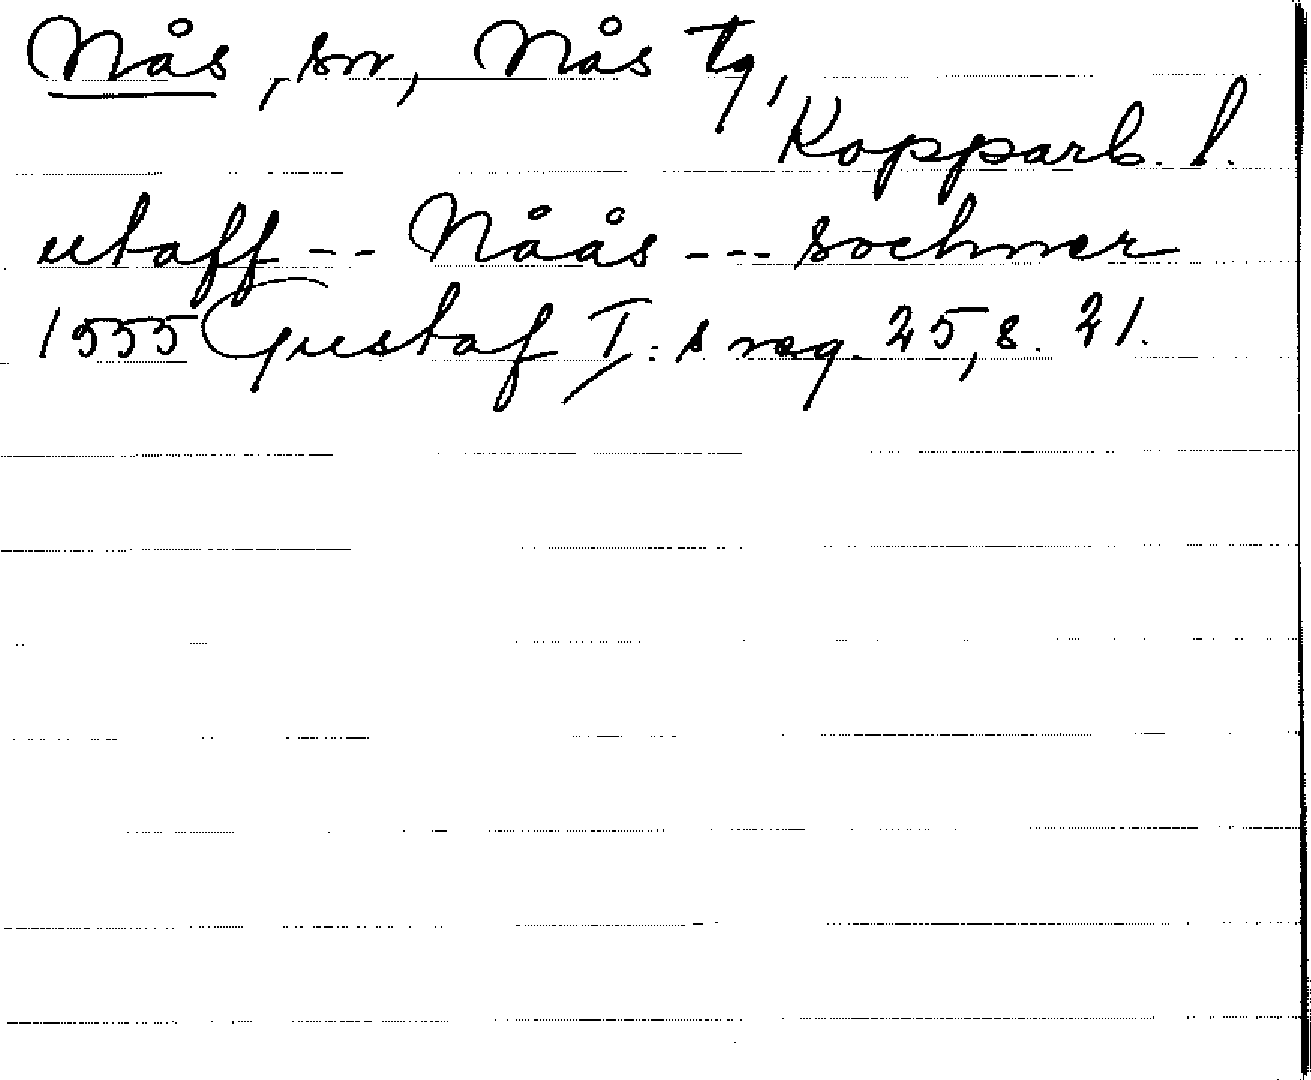 Nås, sn, Nås tg,
Kopparb. l.
utaff -- Nåås --- sochner
1555 Gustaf I:s reg. 25, s. 21.